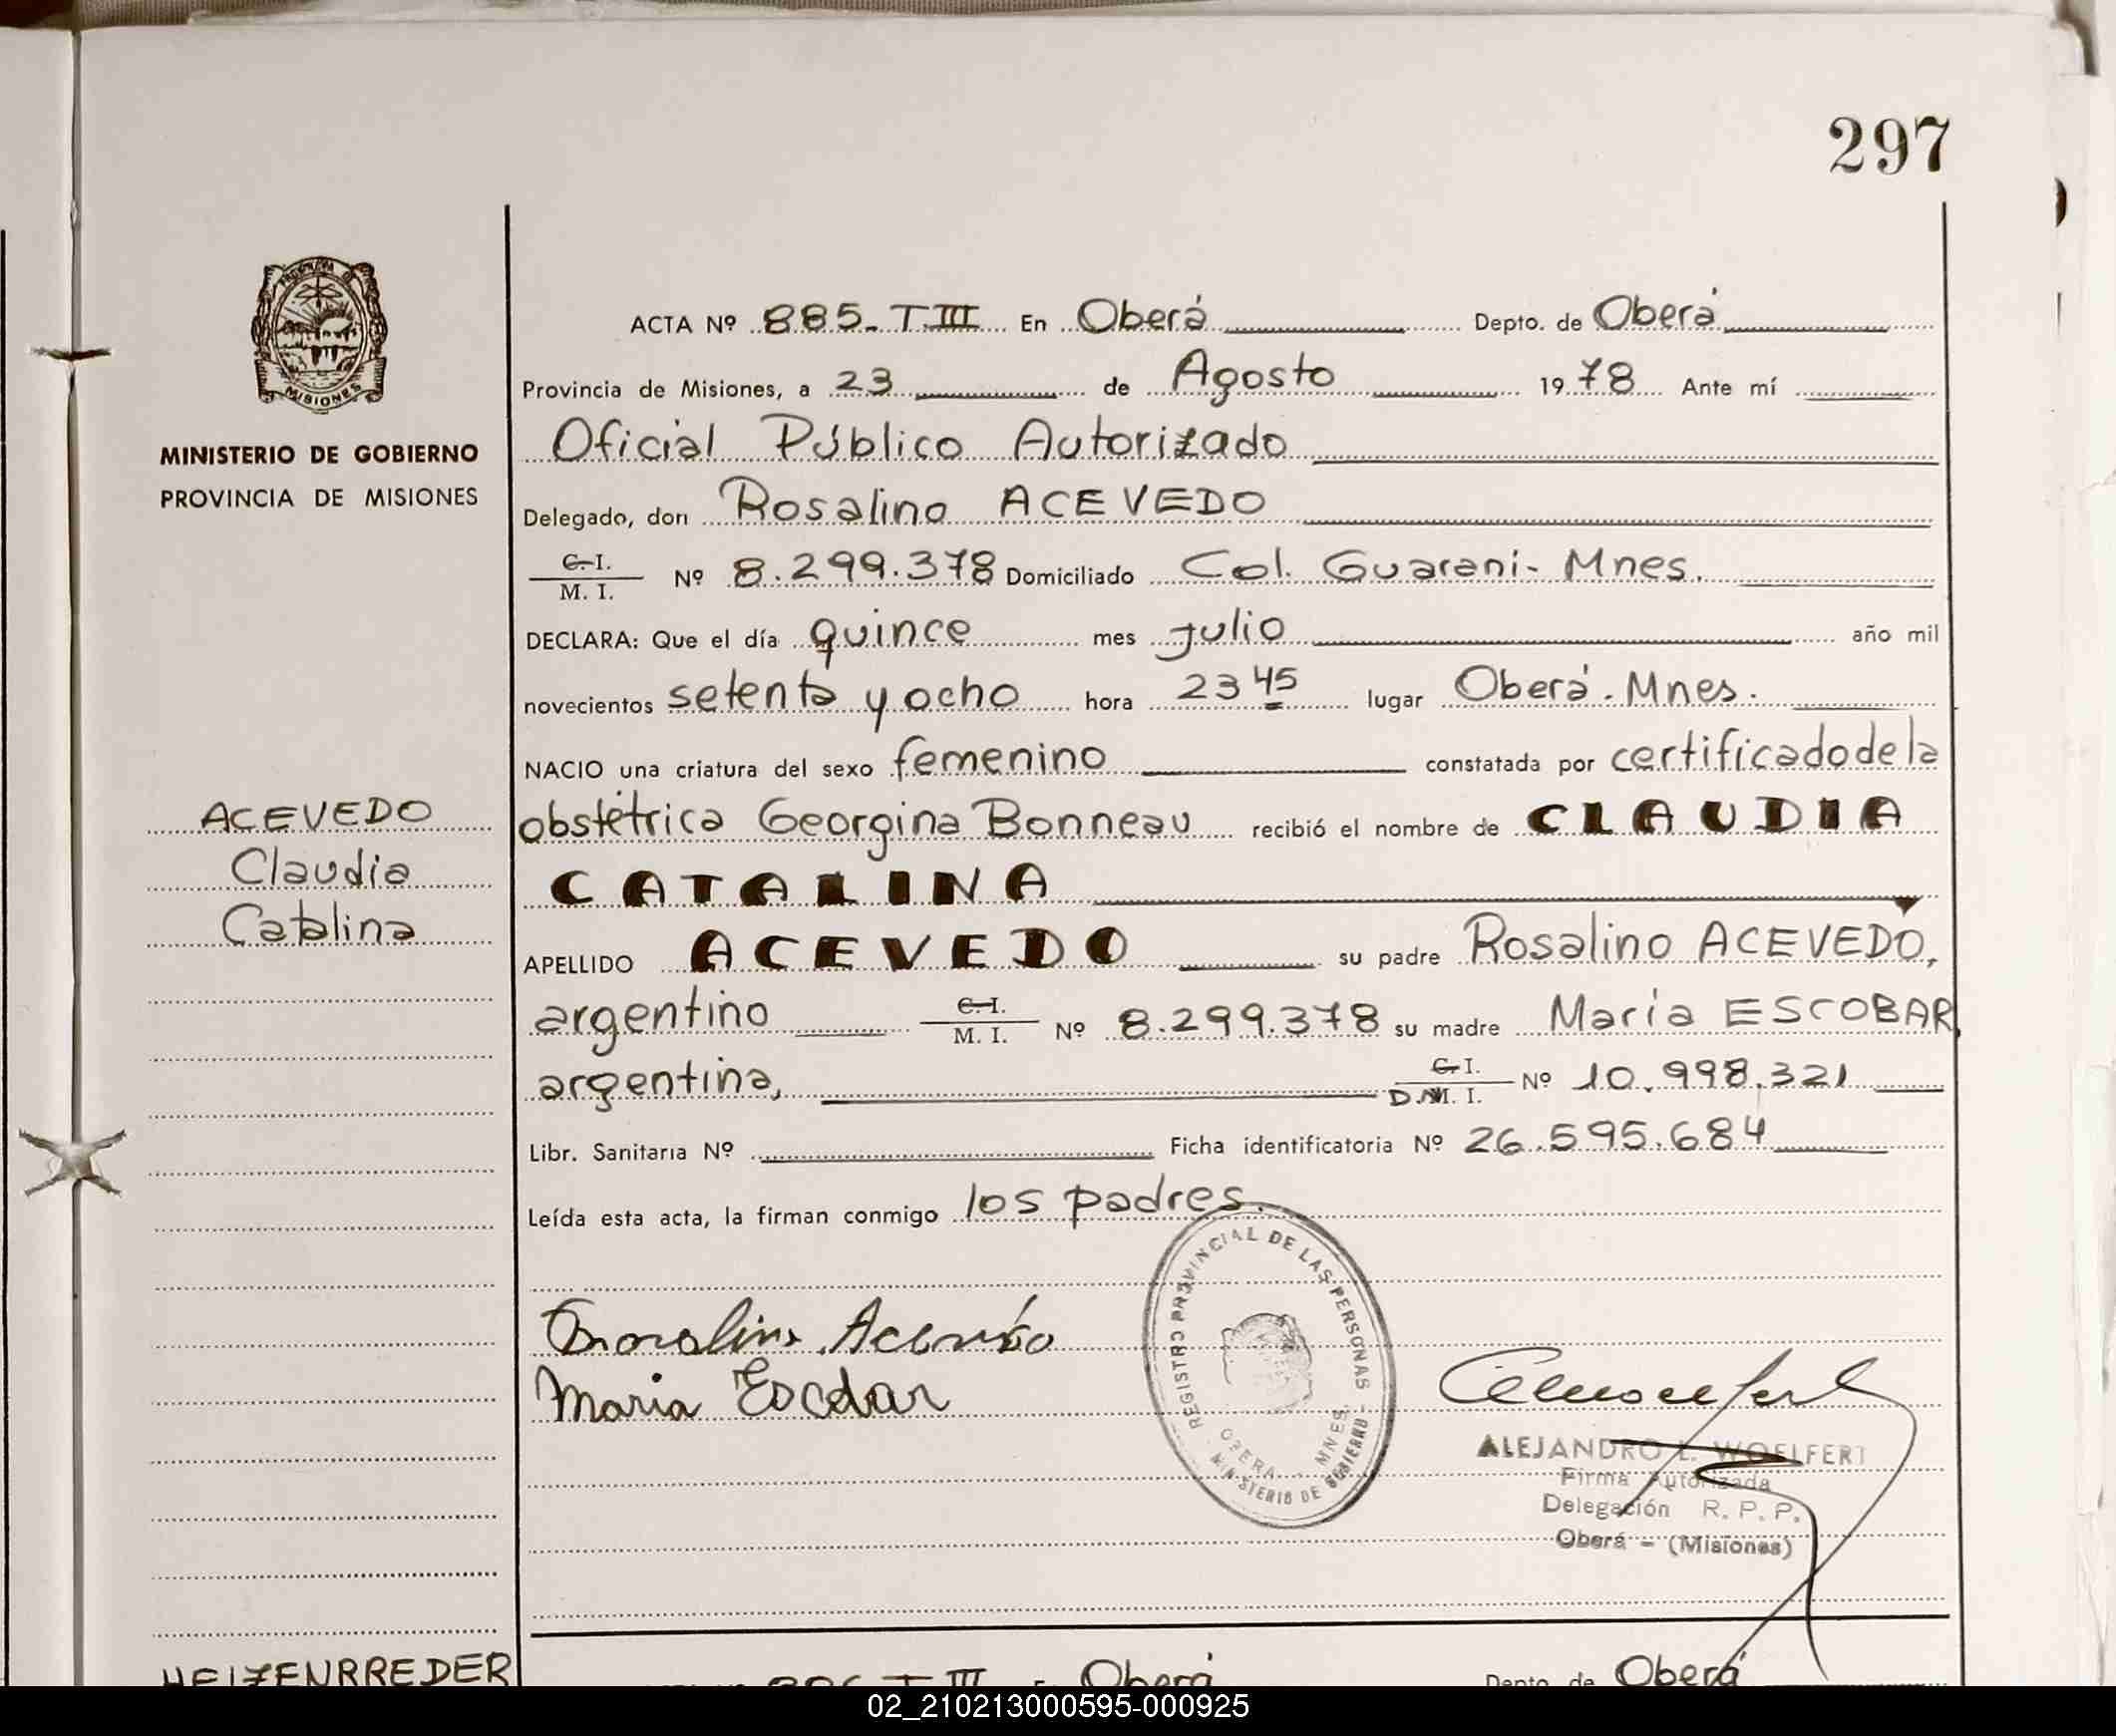 297
PROVINCIA DE
MISIONES
MINISTERIO DE GOBIERNO
PROVINCIA DE MISIONES
ACEVEDO
Claudia
Catalina
ACTA Nº 885-T III En Oberá Depto. de Oberá
Provincia de Misiones, a 23 de Agosto 1978 Ante mí
Oficial Público Autorizado
Delegado, don Rosalino ACEVEDO
C. I.
M. I. Nº 8.299.378 Domiciliado Col. Guarani- Mnes.
DECLARA: Que el día quince mes julio año mil
novecientos setenta y ocho hora 23 45 lugar Oberá. Mnes.
NACIO una criatura del sexo femenino constatada por certificado de la
obstétrica Georgina Bonneau recibió el nombre de CLAUDIA
CATALINA
APELLIDO ACEVEDO su padre Rosalino ACEVEDO,
argentino C. I. M. I. Nº 8.299.378 su madre María ESCOBAR,
argentina, C. I. D.M. I. Nº 10.998.321
Libr. Sanitaria Nº Ficha identificatoria Nº 26.595.684
Leída esta acta, la firman conmigo los padres.
Acevedo
Maria Escobar
REGISTRO PROVINCIAL DE LAS PERSONAS
OBERA - MNES.
MINISTERIO DE GOBIERNO
ALEJANDRO L. WOELFERT
Firma Autorizada
Delegación R. P. P.
Oberá - (Misiones)
886 T III En Oberá Depto. de Oberá
02_210213000595-000925